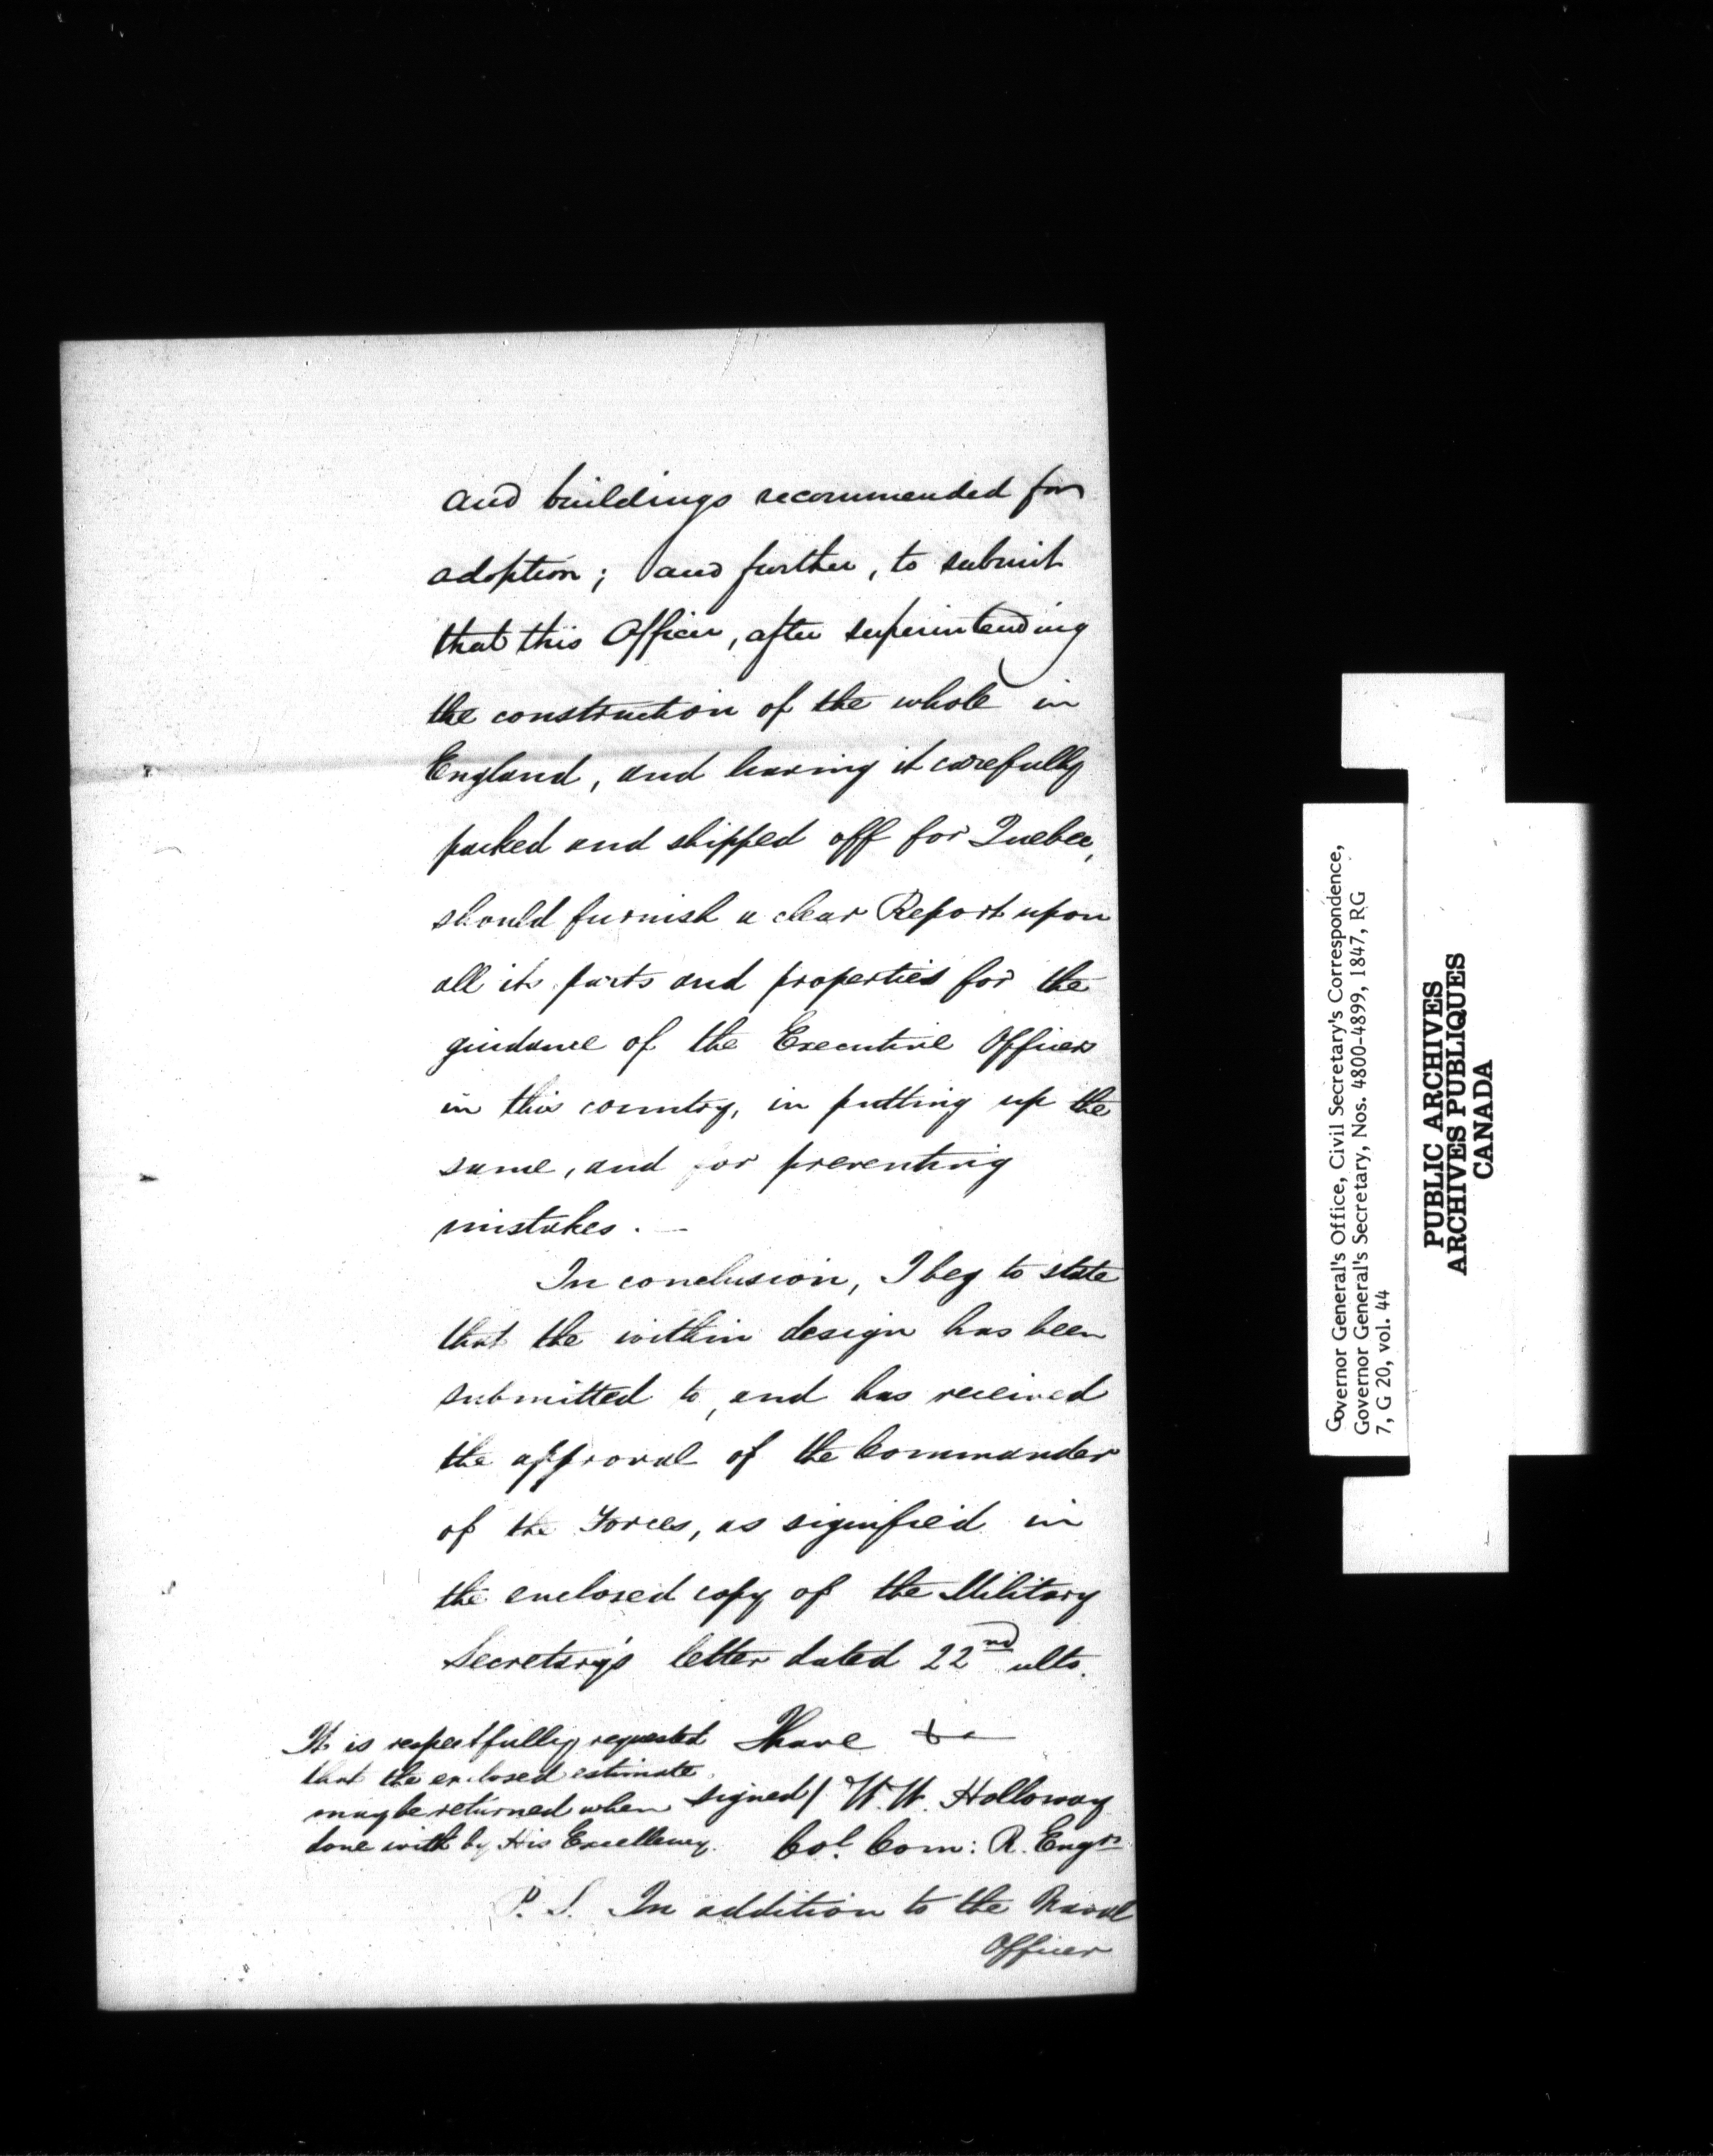 and buildings recommended for
adoption; and further, to submit
that this Officer, after superintending
the construction of the whole in
England, and having it carefully
packed and shipped off for Quebec,
should furnish a clear Report upon
all its parts and properties for the
guidance of the Executive Officers
in this country, in putting up the
same, and for preventing
mistakes. —
In conclusion, I beg to state
that the within design has been
submitted to, and has received
the approval of the Commander
of the Forces, as signified in
the enclosed copy of the Military
Secretary's letter dated 22nd ulto.
I have &c
signed/ W.W. Holloway
Col. Com: R. Engrs
It is respectfully requested
that the enclosed estimate
may be returned when
done with by His Excellency.
P. S. In addition to the Naval
Officer
Governor General's Office, Civil Secretary's Correspondence,
Governor General's Secretary, Nos. 4800-4899, 1847, RG
7, G 20, vol. 44
PUBLIC ARCHIVES
ARCHIVES PUBLIQUES
CANADA